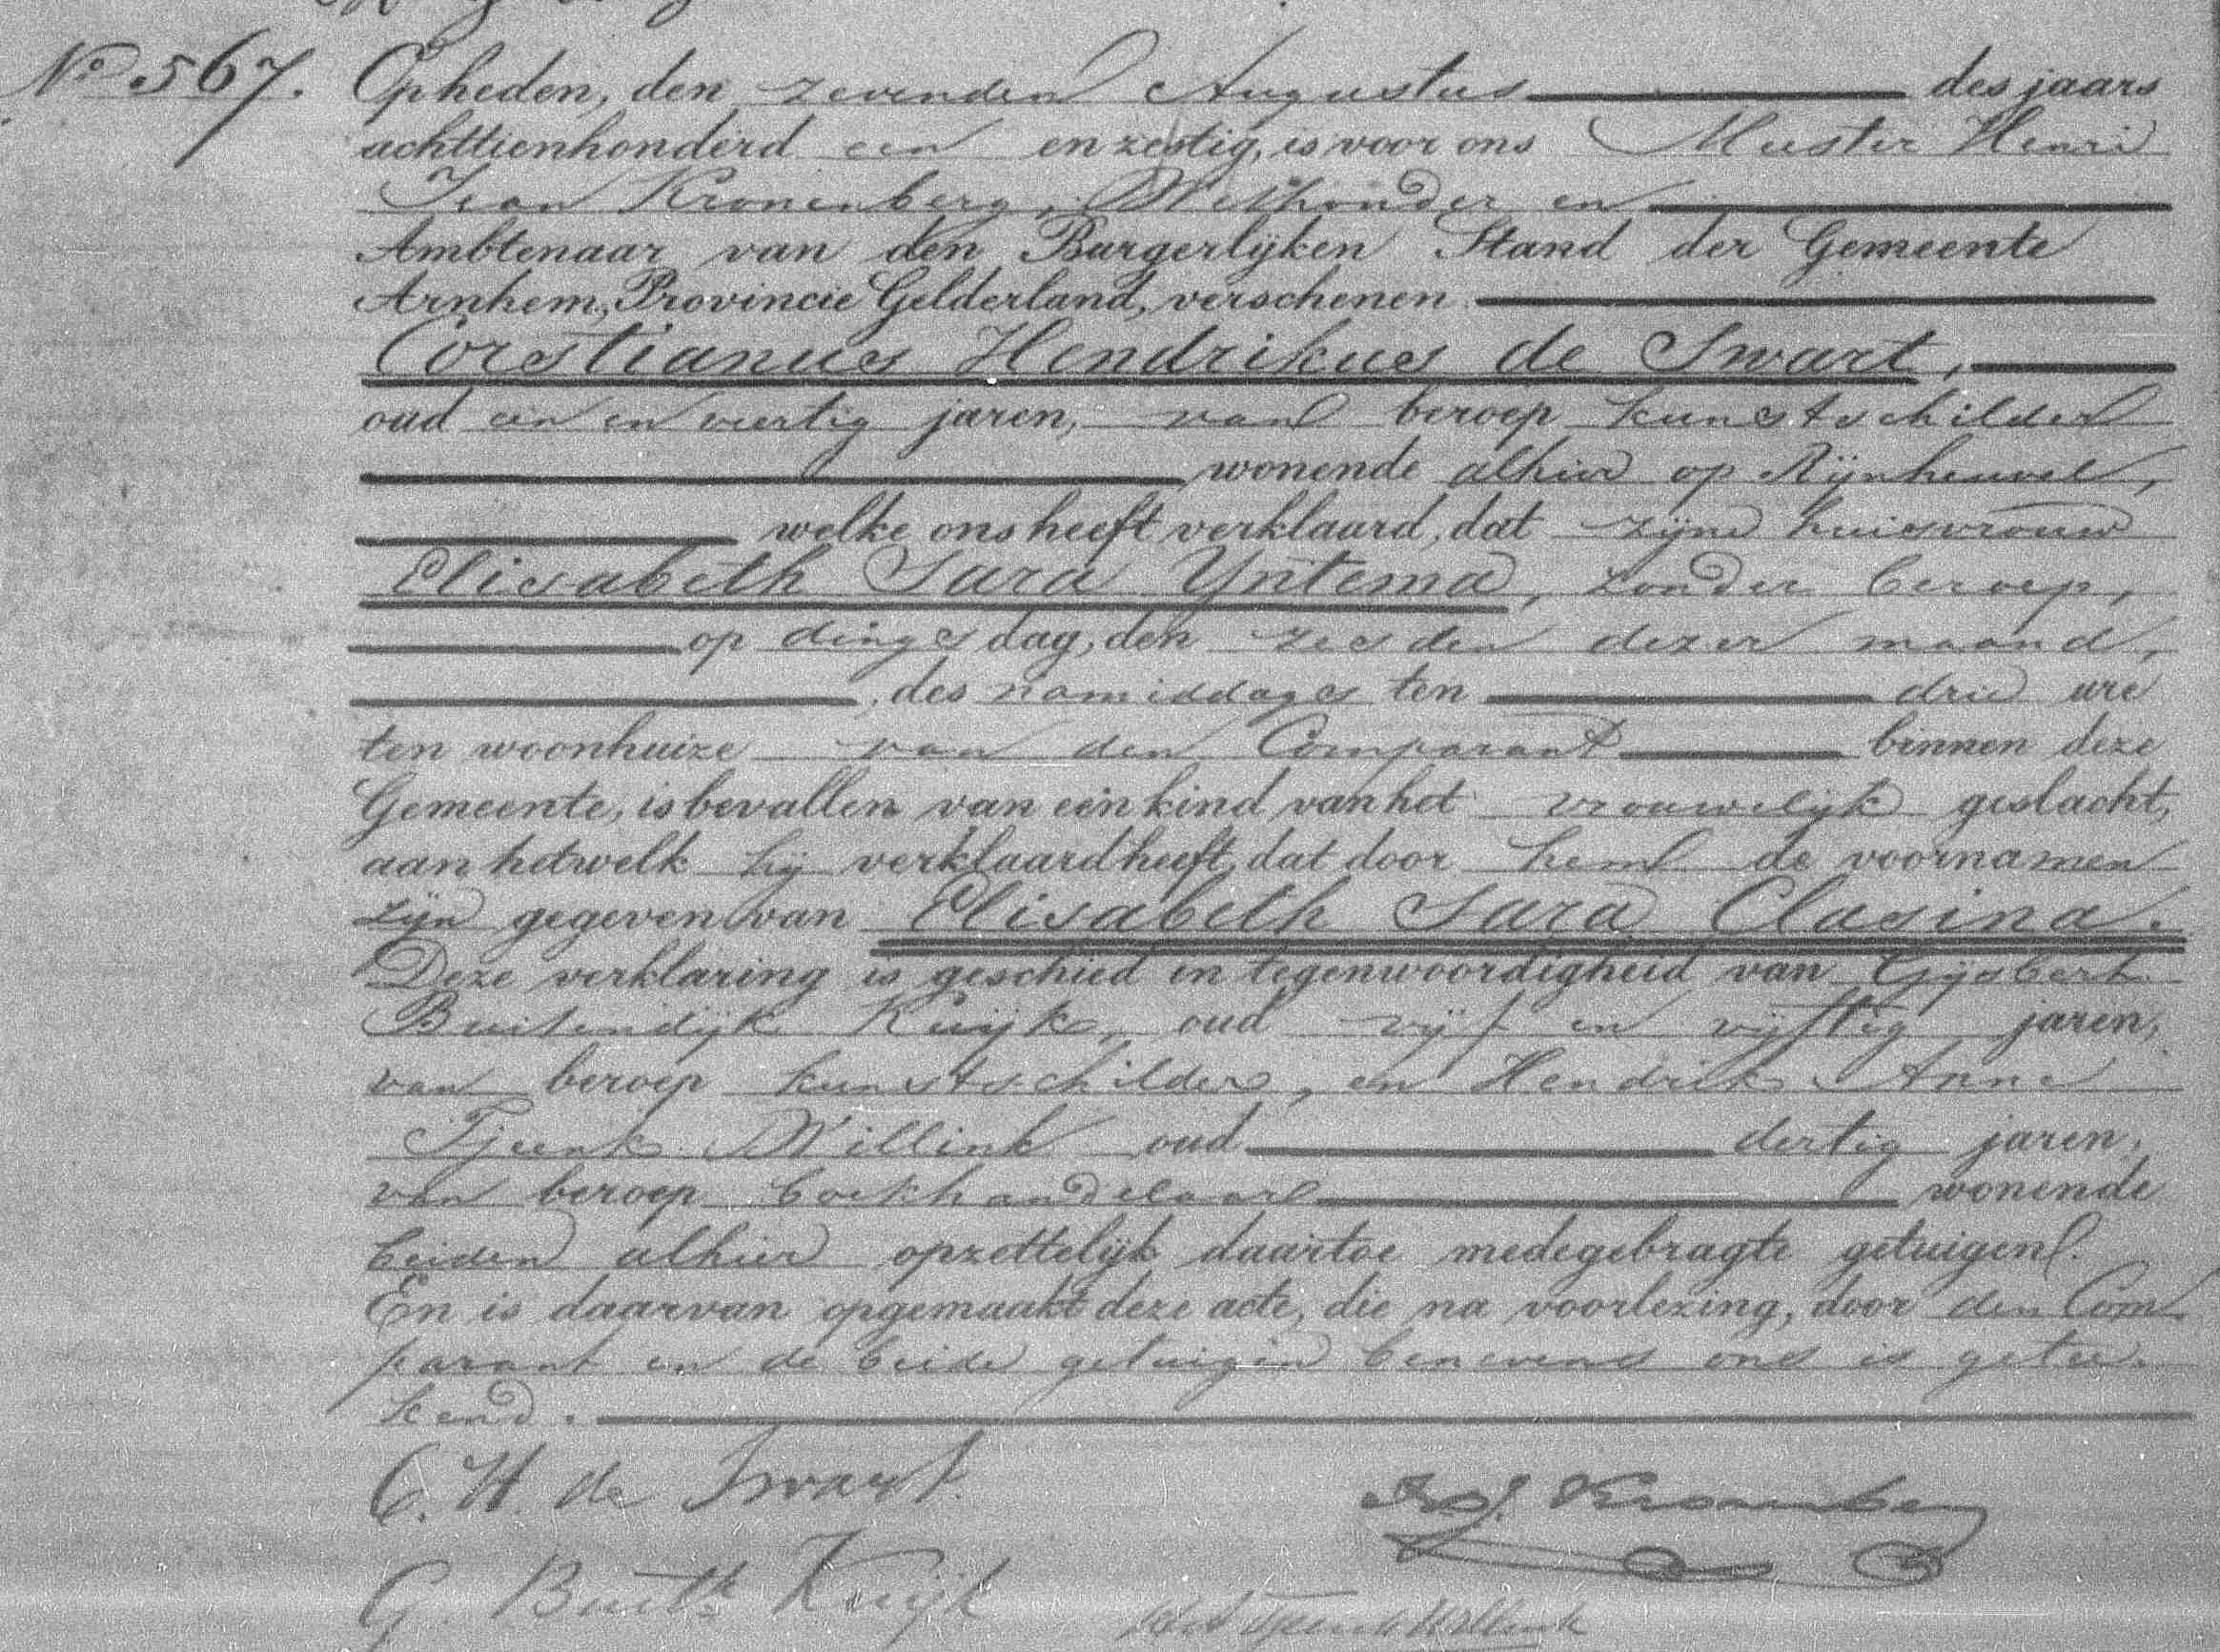 No 567. Opheden, den zevenden Augustus des jaars
achttienhonderd een en zestig, is voor ons Meester Henri
Jean Kronenberg, Wethouder en
Ambtenaar van den Burgerlijken Stand der Gemeente
Arnhem, Provincie Gelderland, verschenen
Corstianus Hendrikus de Swart,
oud een en veertig jaren, van beroep kunstschilder
wonende alhier op Rijnheuvel,
welke ons heeft verklaard, dat zijne huisvrouw
Elisabeth Sara Yntema, zonder beroep,
op dingsdag, den zesden dezer maand,
, des namiddags ten drie ure
ten woonhuize van den Comparant binnen deze
Gemeente, is bevallen van een kind van het vrouwelijk geslacht,
aan hetwelk hij verklaard heeft, dat door hem de voornamen
zijn gegeven van Elisabeth Sara Clasina.
Deze verklaring is geschied in tegenwoordigheid van Gijsbert
Buitendijk Kuijk, oud vijf en vijftig jaren,
van beroep kunstschilder, en Hendrik Anne
Tjeenk Willink oud dertig jaren,
van beroep boekhandelaar wonende
beiden alhier opzettelijk daartoe medegebragte getuigen.
En is daarvan opgemaakt deze acte, die na voorlezing, door den Com
parant en de beide getuigen benevens ons is getee-
kend.
C. H. de Swart.
H. J. Kronenberg
G. Buitk Kuijk
Tjeenk Willink